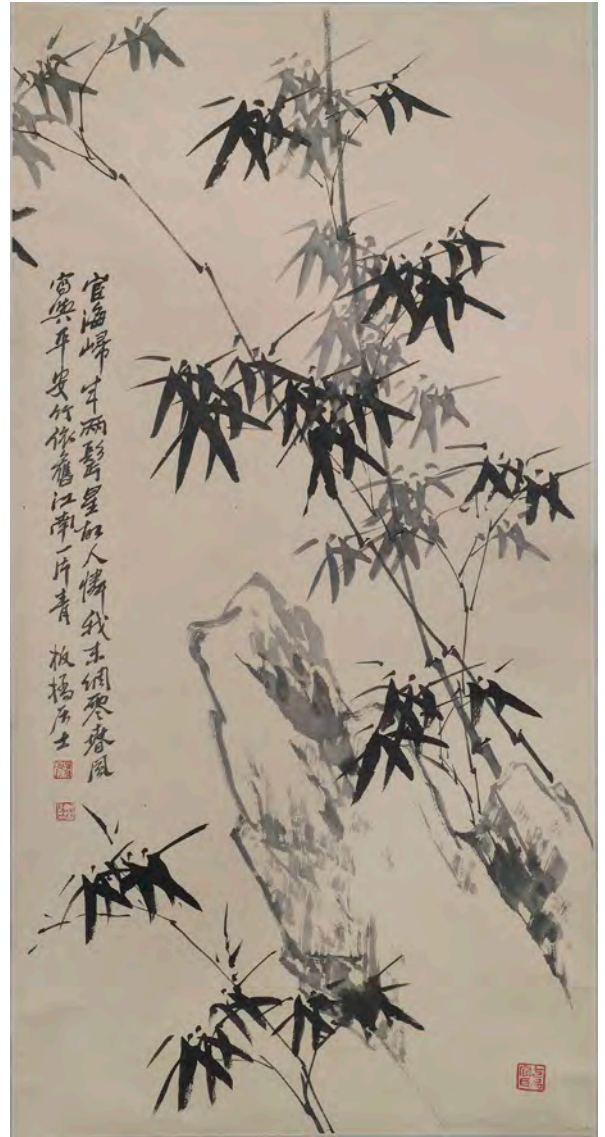 宦海歸来兩鬢星故人憐我未凋零春風
寫與平安竹依舊江南一片青 板橋居士